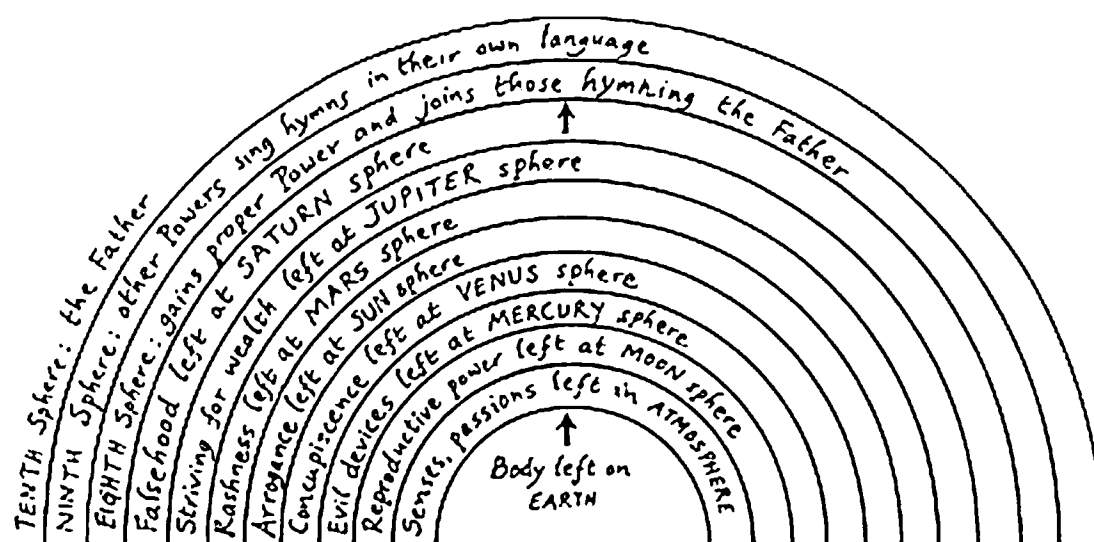 TENTH Sphere: the Father
NINTH Sphere: other Powers sing hymns in their own language
EIGHTH Sphere: gains proper Power and joins those hymning the Father
Falsehood left at SATURN sphere
Striving for wealth left at JUPITER sphere
Rashness left at MARS sphere
Arrogance left at SUN sphere
Concupiscence left at VENUS sphere
Evil devices left at MERCURY sphere
Reproductive power left at MOON sphere
Senses, passions left in ATMOSPHERE
Body left on
EARTH